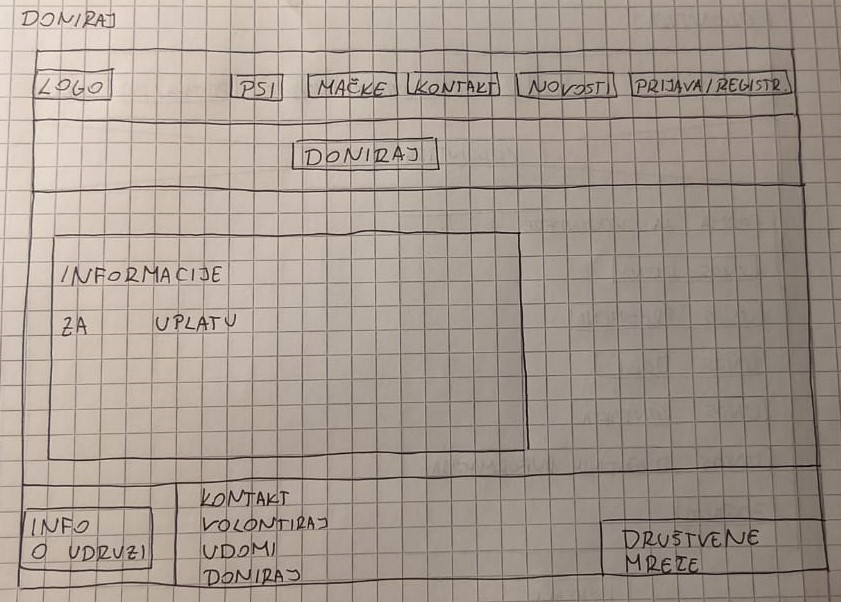 DONIRAJ
LOGO PSI MAČKE KONTAKT NOVOSTI PRIJAVA/REGISTR.
DONIRAJ
INFORMACIJE
ZA UPLATU
KONTAKT
VOLONTIRAJ
UDOMI
DONIRAJ
INFO
O UDRUZI
DRUŠTVENE
MREŽE